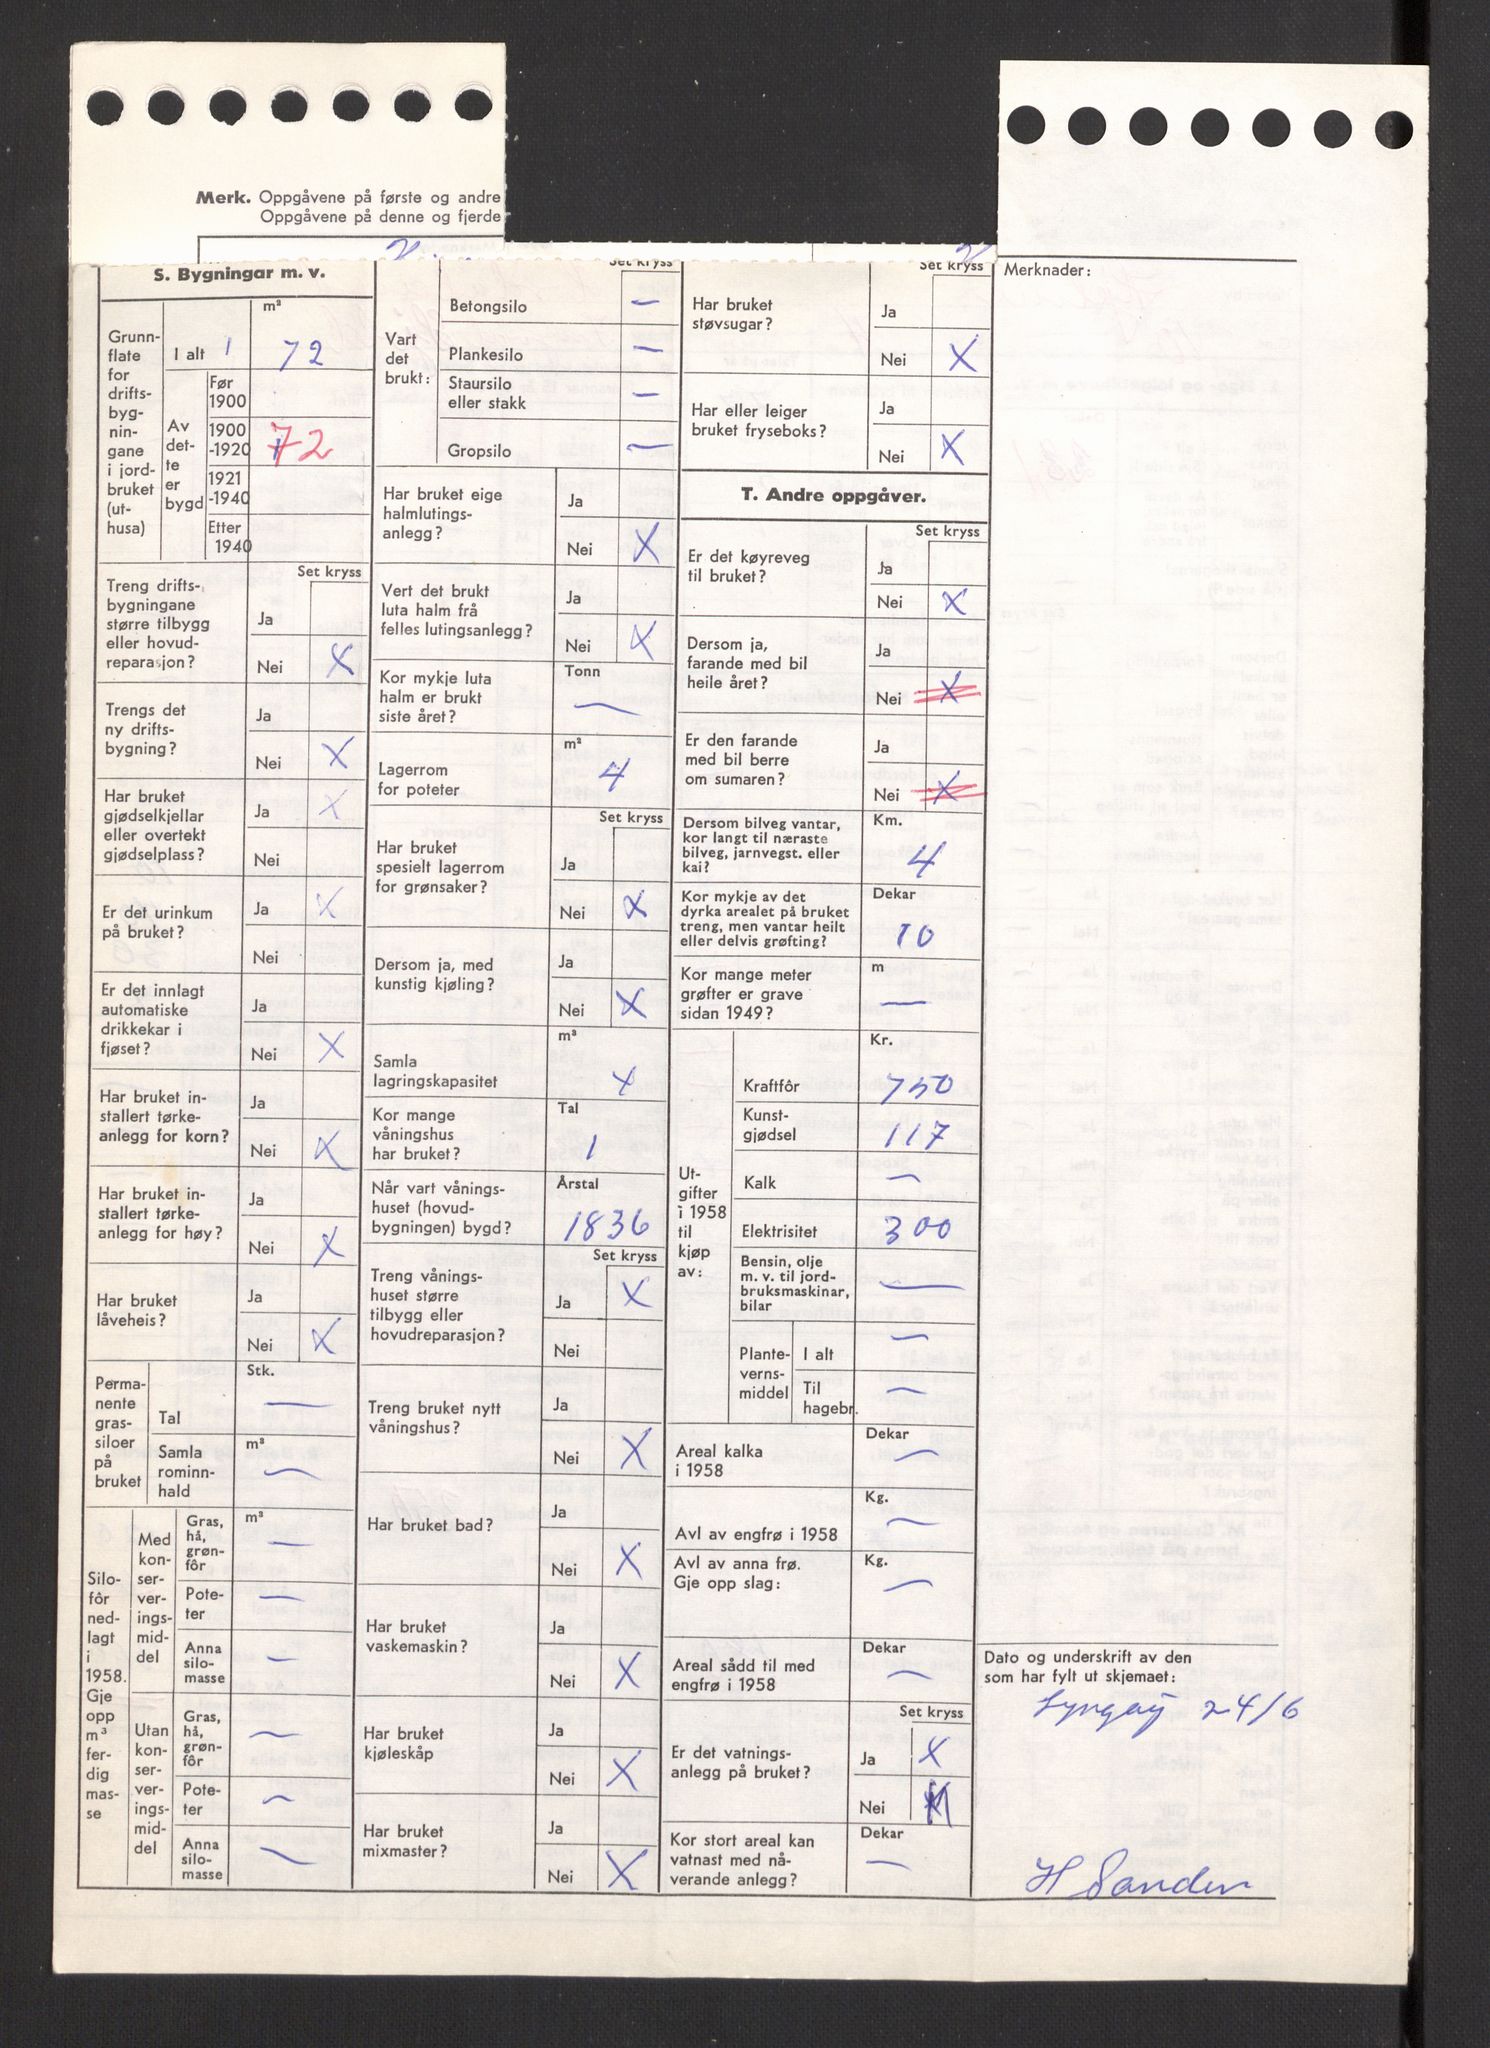 Merk. Oppgåvene på første og andre
Oppgåvene på denne og fjerde
S. Bygningar m. v.
m²
Grunn-
flate
for
drifts-
byg-
nin-
gane
i jord-
bruket
(ut-
husa)
I alt 1 72
Av
det-
te
er
bygd
Før
1900
1900
-1920 72
1921
-1940
Etter
1940
Set kryss
Treng drifts-
bygningane
større tilbygg
eller hovud-
reparasjon?
Ja
Nei X
Trengs det
ny drifts-
bygning?
Ja
Nei X
Har bruket
gjødselkjellar
eller overtekt
gjødselplass?
Ja X
Nei
Er det urinkum
på bruket?
Ja X
Nei
Er det innlagt
automatiske
drikkekar i
fjøset?
Ja
Nei X
Har bruket in-
stallert tørke-
anlegg for korn?
Ja
Nei X
Har bruket in-
stallert tørke-
anlegg for høy?
Ja
Nei X
Har bruket
låveheis?
Ja
Nei X
Perma-
nente
gras-
siloer
på
bruket
Stk.
Tal —
Samla
rominn-
hald
m³
—
Silo-
fôr
ned-
lagt
i
1958.
Gje
opp
m³
fer-
dig
mas-
se
Med
kon-
ser-
ver-
ings-
mid-
del
Gras,
hå,
grøn-
fôr
m³
—
Pote-
ter —
Anna
silo-
masse —
Utan
kon-
ser-
ver-
ings-
mid-
del
Gras,
hå,
grøn-
fôr —
Pote-
ter —
Anna
silo-
masse —
Set kryss
Vart
det
brukt:
Betongsilo —
Plankesilo —
Staursilo
eller stakk —
Gropsilo —
Har bruket eige
halmlutings-
anlegg?
Ja
Nei X
Vert det brukt
luta halm frå
felles lutingsanlegg?
Ja
Nei X
Kor mykje luta
halm er brukt
siste året?
Tonn
—
Lagerrom
for poteter
m²
4
Set kryss
Har bruket
spesielt lagerrom
for grønsaker?
Ja
Nei X
Dersom ja, med
kunstig kjøling?
Ja
Nei X
Samla
lagringskapasitet
m³
4
Kor mange
våningshus
har bruket?
Tal
1
Når vart vånings-
huset (hovud-
bygningen) bygd?
Årstal
1836
Set kryss
Treng vånings-
huset større
tilbygg eller
hovudreparasjon?
Ja X
Nei
Treng bruket nytt
våningshus?
Ja
Nei X
Har bruket bad?
Ja
Nei X
Har bruket
vaskemaskin?
Ja
Nei X
Har bruket
kjøleskåp
Ja
Nei X
Har bruket
mixmaster?
Ja
Nei X
Set kryss
Har bruket
støvsugar?
Ja
Nei X
Har eller leiger
bruket fryseboks?
Ja
Nei X
T. Andre oppgåver.
Set kryss
Er det køyreveg
til bruket?
Ja
Nei X
Dersom ja,
farande med bil
heile året?
Ja
Nei X
Er den farande
med bil berre
om sumaren?
Ja
Nei X
Dersom bilveg vantar,
kor langt til næraste
bilveg, jarnvegst. eller
kai?
Km.
4
Kor mykje av det
dyrka arealet på bruket
treng, men vantar heilt
eller delvis grøfting?
Dekar
10
Kor mange meter
grøfter er grave
sidan 1949?
m
—
Ut-
gifter
i 1958
til
kjøp
av:
Kr.
Kraftfôr 750
Kunst-
gjødsel 117
Kalk —
Elektrisitet 300
Bensin, olje
m. v. til jord-
bruksmaskinar,
bilar —
Plante-
verns-
middel
I alt —
Til
hagebr. —
Areal kalka
i 1958
Dekar
—
Avl av engfrø i 1958
Kg.
—
Avl av anna frø.
Gje opp slag:
Kg.
—
Areal sådd til med
engfrø i 1958
Dekar
—
Set kryss
Er det vatnings-
anlegg på bruket?
Ja X
Nei
Kor stort areal kan
vatnast med nå-
verande anlegg?
Dekar
—
Merknader:
Dato og underskrift av den
som har fylt ut skjemaet:
Lyngøy 24/6
H Sanden